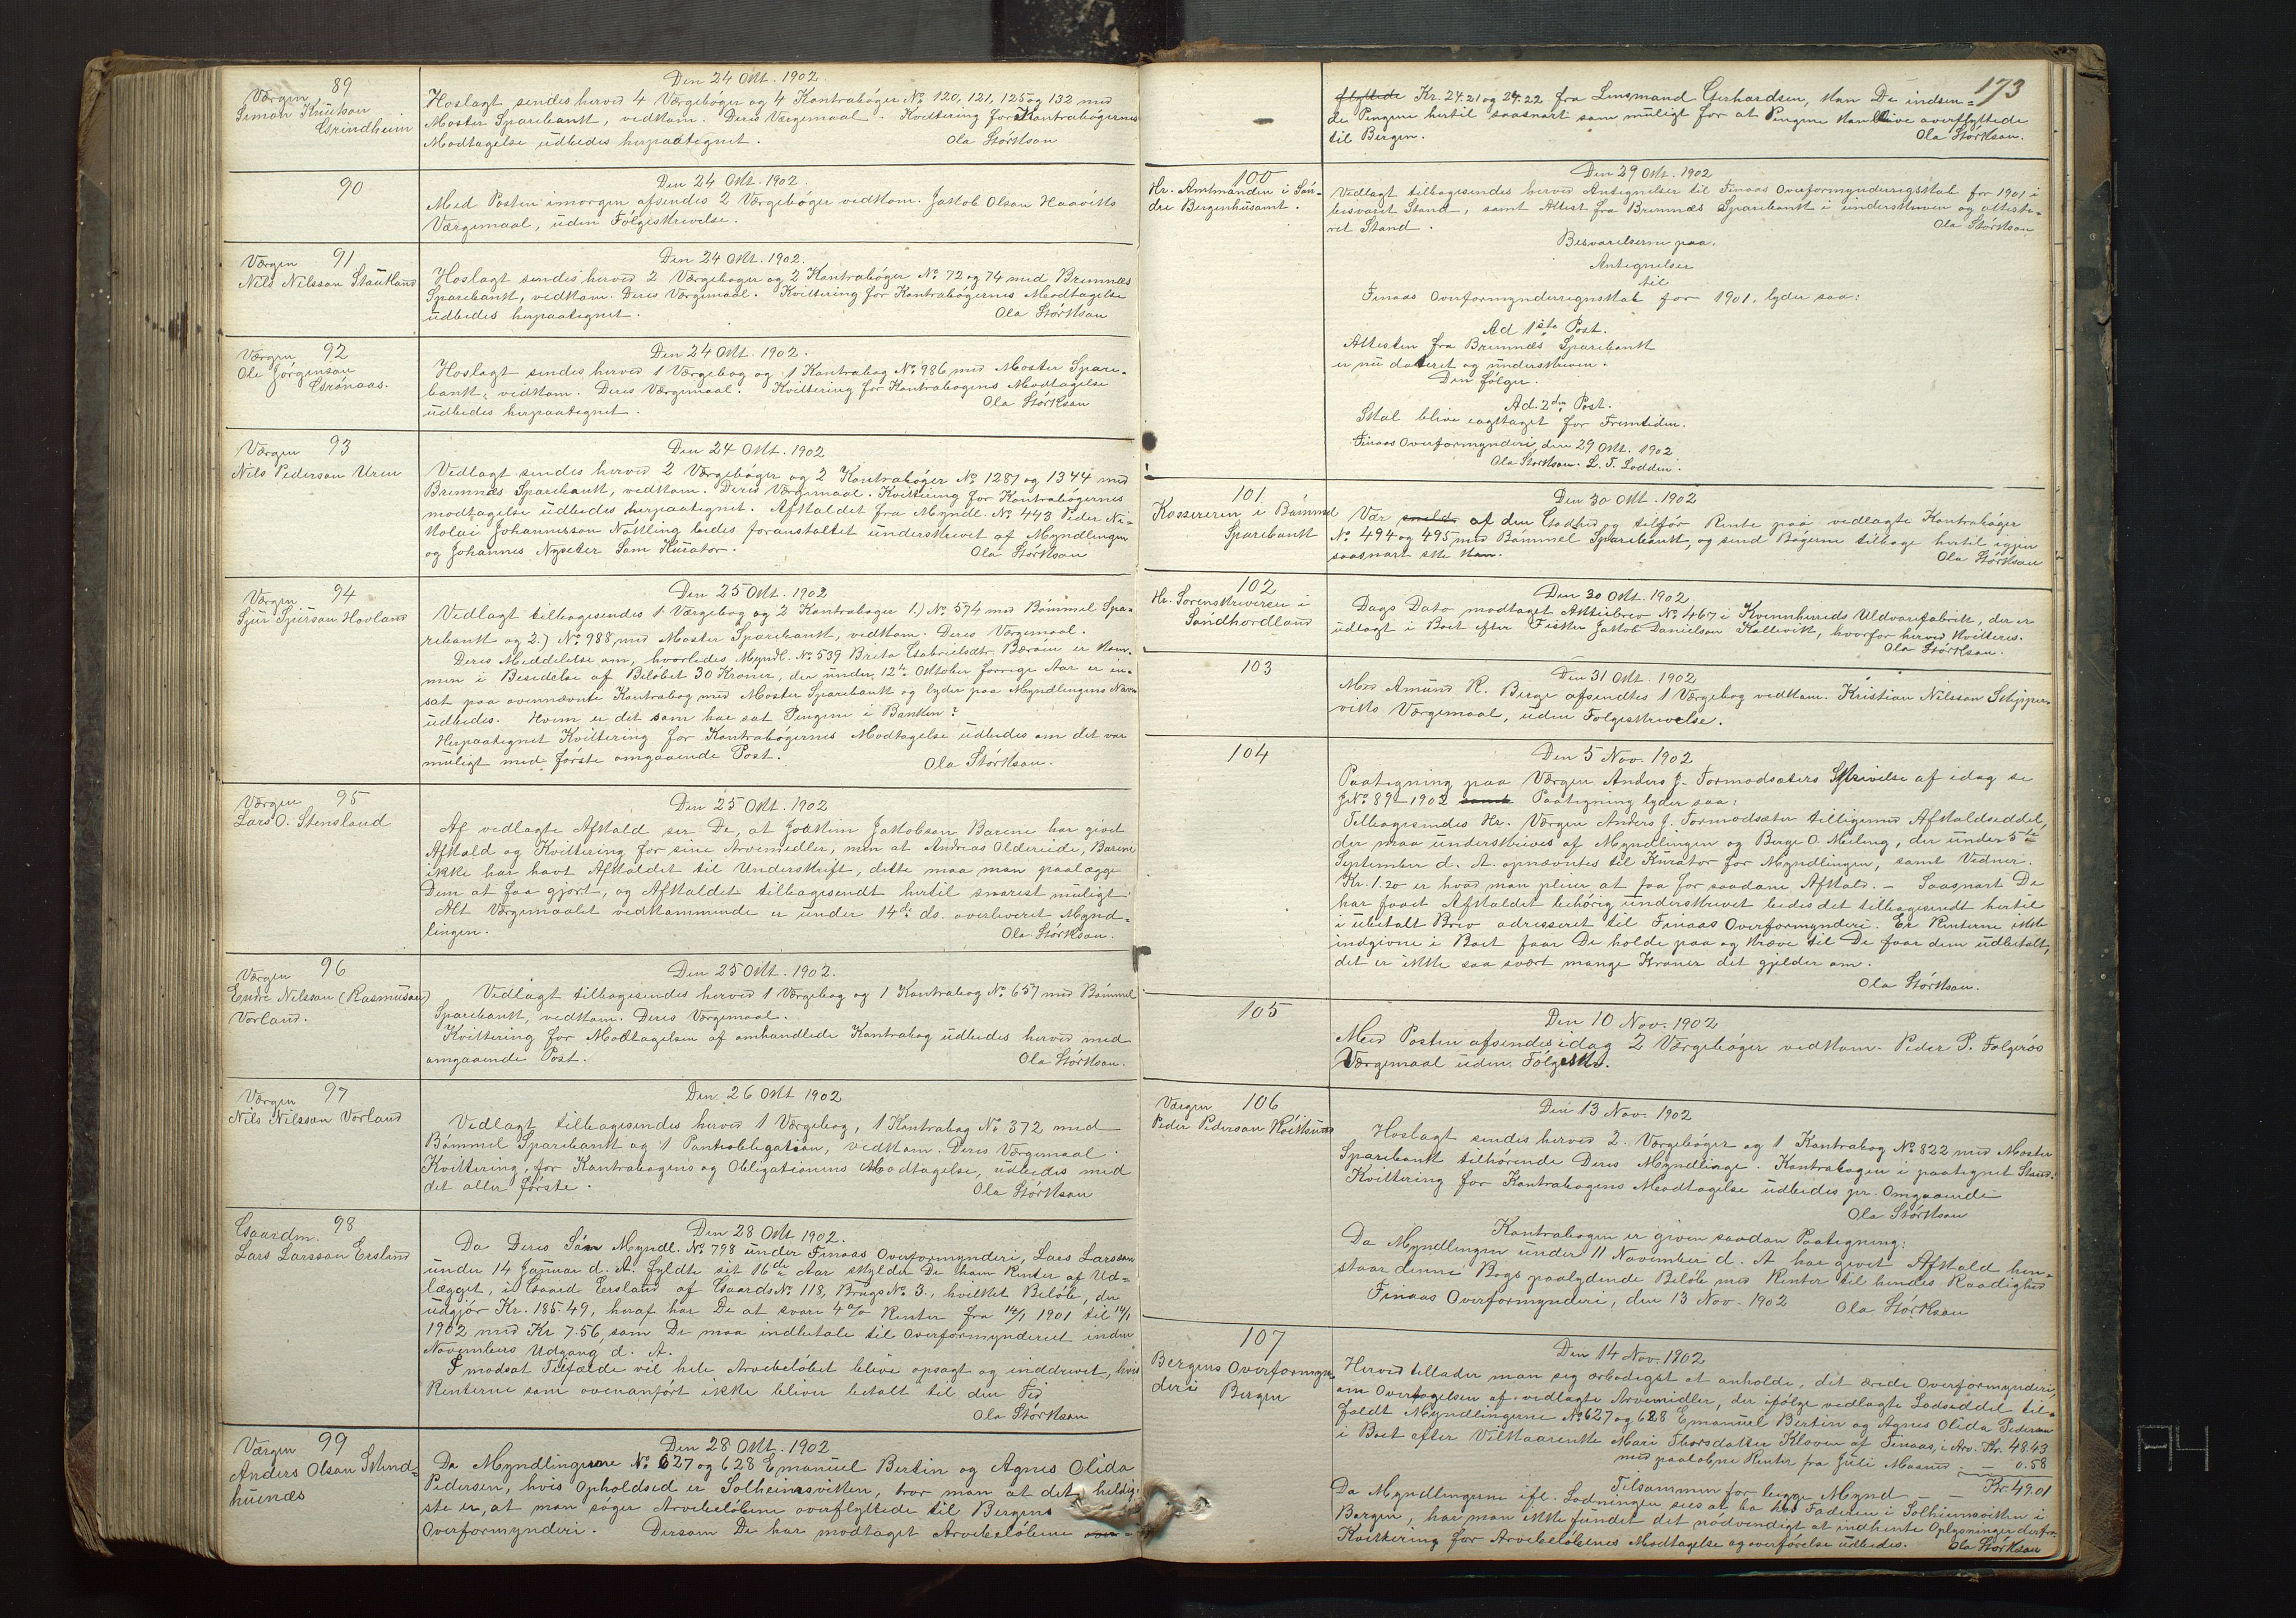 89
Værgen
Simon Knutson
Grindheim
Den 24 Okt. 1902.
Hoslagt sendes herved 4 Værgebøger og 4 Kontrabøger No 120, 121, 125 og 132 med
Moster Sparebank, vedkom. Deres Værgemaal. Kvittering for Kontrabøgernes
Modtagelse udbedes herpaategnet.
Ola Størkson
90
Den 24 Okt. 1902.
Med Posten imorgen afsendes 2 Værgebøger vedkom. Jakob Olson Haaviks
Værgemaal, uden Følgeskrivelse.
91
Værgen
Nils Nilsson Stautland
Den 24 Okt. 1902.
Hoslagt sendes herved 2 Værgebøger og 2 Kontrabøger No 72 og 74 med Bremnes
Sparebank, vedkom. Deres Værgemaal. Kvittering for Kontrabøgernes Modtagelse
udbedes herpaategnet.
Ola Størkson
92
Værgen
Ole Jørgenson
Grønaas.
Den 24 Okt. 1902.
Hoslagt sendes herved 1 Værgebog og 1 Kontrabog No 986 med Moster Spare-
bank, vedkom. Deres Værgemaal. Kvittering for Kontrabogens Modtagelse
udbedes herpaategnet.
Ola Størkson
93
Værgen
Nils Pederson Uren
Den 24 Okt. 1902
Vedlagt sendes herved 2 Værgebøger og 2 Kontrabøger No 1281 og 1344 med
Bremnes Sparebank, vedkom. Deres Værgemaal. Kvittering for Kontrabøgernes
modtagelse udbedes herpaategnet. Afkaldet fra Myndl. No 443 Peder Ni-
kolai Johannesson Nøkling bedes foranstaltet underskrevet af Myndlingen
og Johannes Nyseter som Kurator.
Ola Størkson
94
Værgen
Sjur Sjurson Hovland
Den 25 Okt. 1902
Vedlagt tilbagesendes 1 Værgebog og 2 Kontrabøger 1.) No 574 med Bømmel Spa-
rebank og 2.) No 988 med Moster Sparebank, vedkom. Deres Værgemaal.
Deres Meddelelse om, hvorledes Myndl. No 539 Brita Gabrielsdtr. Bærøen er kom-
men i Besidelse af Beløbet 30 Kroner, der under 12te Oktober forrige Aar er in-
sat paa ovennævnte Kontrabog med Moster Sparebank og lyder paa Myndlingens Navn
udbedes. Hvem er det som har sat Pengene i Banken?
Herpaategnet Kvittering for Kontrabøgernes Modtagelse udbedes om det var
muligt med første omgaaende Post.
Ola Størkson.
95
Værgen
Lars O. Stensland
Den 25 Okt. 1902
Af vedlagte Afkald ser De, at Joakim Jakobson Barene har givet
Afkald og Kvittering for sine Arvemidler, men at Andreas Oldereide, Barene
ikke har havt Afkaldet til Underskrift, dette maa man paalægge
Dem at faa gjort, og Afkaldet tilbagesendt hertil snarest muligt.
Alt Værgemaalet vedkommende er under 14de ds. overleveret Mynd-
lingen.
Ola Størkson.
96
Værgen
Endre Nilsson (Rasmuson)
Vorland.
Den 25 Okt. 1902.
Vedlagt tilbagesendes herved 1 Værgebog og 1 Kontrabog No 657 med Bømmel
Sparebank, vedkom. Deres Værgemaal.
Kvittering for Modtagelsen af omhandlede Kontrabog udbedes herved med
omgaaende Post.
Ola Størkson.
97
Værgen
Nils Nilsson Vorland
Den 26 Okt 1902
Vedlagt tilbagesendes herved 1 Værgebog, 1 Kontrabog No 372 med
Bømmel Sparebank og 1 Panteobligation, vedkom. Deres Værgemaal.
Kvittering, for Kontrabogens og Obligationens Modtagelse, udbedes med
det aller første.
Ola Størkson
98
Gaardm.
Lars Larsson Ersland
Den 28 Okt 1902.
Da Deres Søn Myndl. No 798 under Finaas Overformynderi, Lars Larsson
under 14 Januar d. A. fyldte sit 16de Aar skylder De ham Renter af Ud-
lægget, i Gaard Ersland af Gaards No 118, Brugs No 3, hvilket Beløb, der
udgjør Kr. 185.49, heraf har De at svare 4% Renter fra 14/1 1901 til 14/1
1902 med Kr 7.56, som De maa indbetale til Overformynderiet inden
Novembers Udgang d. A.
I modsat Tilfælde vil hele Arvebeløbet blive opsagt og inddrevet, hvis
Renterne som ovenanført ikke bliver betalt til den Tid
Ola Størkson
99
Værgen
Anders Olson Stend-
huenæs
Den 28 Okt. 1902
Da Myndlingerne No 627 og 628 Emanuel Bertin og Agnes Olida
Pedersen, hvis Opholdsed er Solheimsviken, tror man at det heldig-
ste er, at man søger Arvebeløbene overflyttede til Bergens
Overformynderi. Dersom De har modtaget Arvebeløbene over-
173
flyttede Kr. 24.21 og 24.22 fra Lensmand Gerhardsen, kan De indsen-
de Pengene hertil saasnart som muligt for at Pengene kan blive overflyttede
til Bergen.
Ola Størkson.
100
Hr. Amtmanden i Søn-
dre Bergenhusamt.
Den 29 Okt. 1902
Vedlagt tilbagesendes herved Antegnelser til Finaas Overformynderregskab for 1901 i
besvaret Stand, samt Attest fra Bremnæs Sparebank i underskreven og atteste-
ret Stand.
Ola Størkson
Besvarelserne paa.
Antegnelser
til
Finaas Overformynderregnskab for 1901, lyder saa:
Ad 1ste Post.
Attesten fra Bremnæs Sparebank
er nu dateret og underskreven.
Den følger.
Ad. 2den Post.
Skal blive iagttaget for Fremtiden.
Finaas Overformynderi, den 29 Okt. 1902
Ola Størkson. L. T. Lodden.
101
Kassereren i Bømmel
Sparebank
Den 30 Okt. 1902
Vær snild af den Godhed og tilfør Rente paa vedlagte Kontrabøger
No 494 og 495 med Bømmel Sparebank, og send Bøgerne tilbage hertil igjen
saasnart ske kan.
Ola Størkson
102
Hr. Sorenskriveren i
Søndhordland
Den 30 Okt. 1902
Dags Dato modtaget Aktiebrev No 467 i Kvinnherreds Uldvarefabrik, der er
udlagt i Boet efter Fisker Jakob Danielson Kallevik, hvorfor herved kvitteres.
Ola Størkson.
103
Den 31 Okt. 1902
Med Amund K. Berge afsendtes 1 Værgebog vedkom. Kristian Nilsson Skipper-
viks Værgemaal, uden Følgeskrivelse.
104
Den 5 Nov. 1902
Paategning paa Værgen Anders J. Tormodsæters Skrivelse af idag se
JNo 89-1902 samt Paategning lyder saa:
Tilbagesendes Hr. Værgen Anders J. Tormodsæter tilligemed Afkaldseddel,
der maa underskrives af Myndlingen og Berge O. Meling, der under 5te
September d. A. opnævntes til Kurator for Myndlingen, samt Vidner.
Kr. 1.20 er hvad man pleier at faa for saadane Afkald. - Saasnart De
har faaet Afkaldet behørig underskrevet bedes det tilbagesendt hertil
i ubetalt Brev adresseret til Finaas Overformynderi. Er Renterne ikke
indgivne i Boet faar De holde paa og kræve til De faar dem udbetalt,
det er ikke saa svært mange Kroner det gjelder om.
Ola Størkson.
105
Den 10 Nov. 1902
Med Posten afsendes idag 2 Værgebøger vedkom. Peder P. Folgerøs
Værgemaal uden Følgeskr.
106
Værgen
Peder Pederson
Den 13 Nov. 1902
Hoslagt sendes herved 2. Værgebøger og 1 Kontrabog No 822 med Moster
Sparebank tilhørende Deres Myndlinge. Kontrabogen i paategnet Stand.
Kvittering for Kontrabogens Modtagelse udbedes pr. Omgaaende
Ola Størkson
Kontrabogen er given saadan Paategning:
Da Myndlingen under 11 November d. A har givet Afkald hen-
staar denne Bogs paalydende Beløb med Renter til hendes Raadighed
Finaas Overformynderi, den 13 Nov. 1902
Ola Størkson
107
Bergens Overformyn-
deri
Bergen
Den 14 Nov. 1902
Herved tillader man sig ærbødigst at anholde, det ærede Overformynderi,
om Overtagelsen af vedlagte Arvemidler, der ifølge vedlagte Lodseddel til-
faldt Myndlingerne No 627 og 628 Emanuel Bertin og Agnes Olida Pedersen
i Boet efter Vilkaarenke Mari Thorsdatter Kloven af Finaas, i Arv. Kr. 48.43
med paaløbne Renter fra Juli Maaned - 0.58
Tilsammen for begge Mynd - - Kr. 49.01
Da Myndlingerne ifl. Lodningen sees at ha hos Faderen i Solheimsviken i
Bergen, har man ikke fundet det nødvendigt at indhente Oplysninger derfor.
Kvittering for Arvebeløbenes Modtagelse og overførelse udbedes.
Ola Størkson